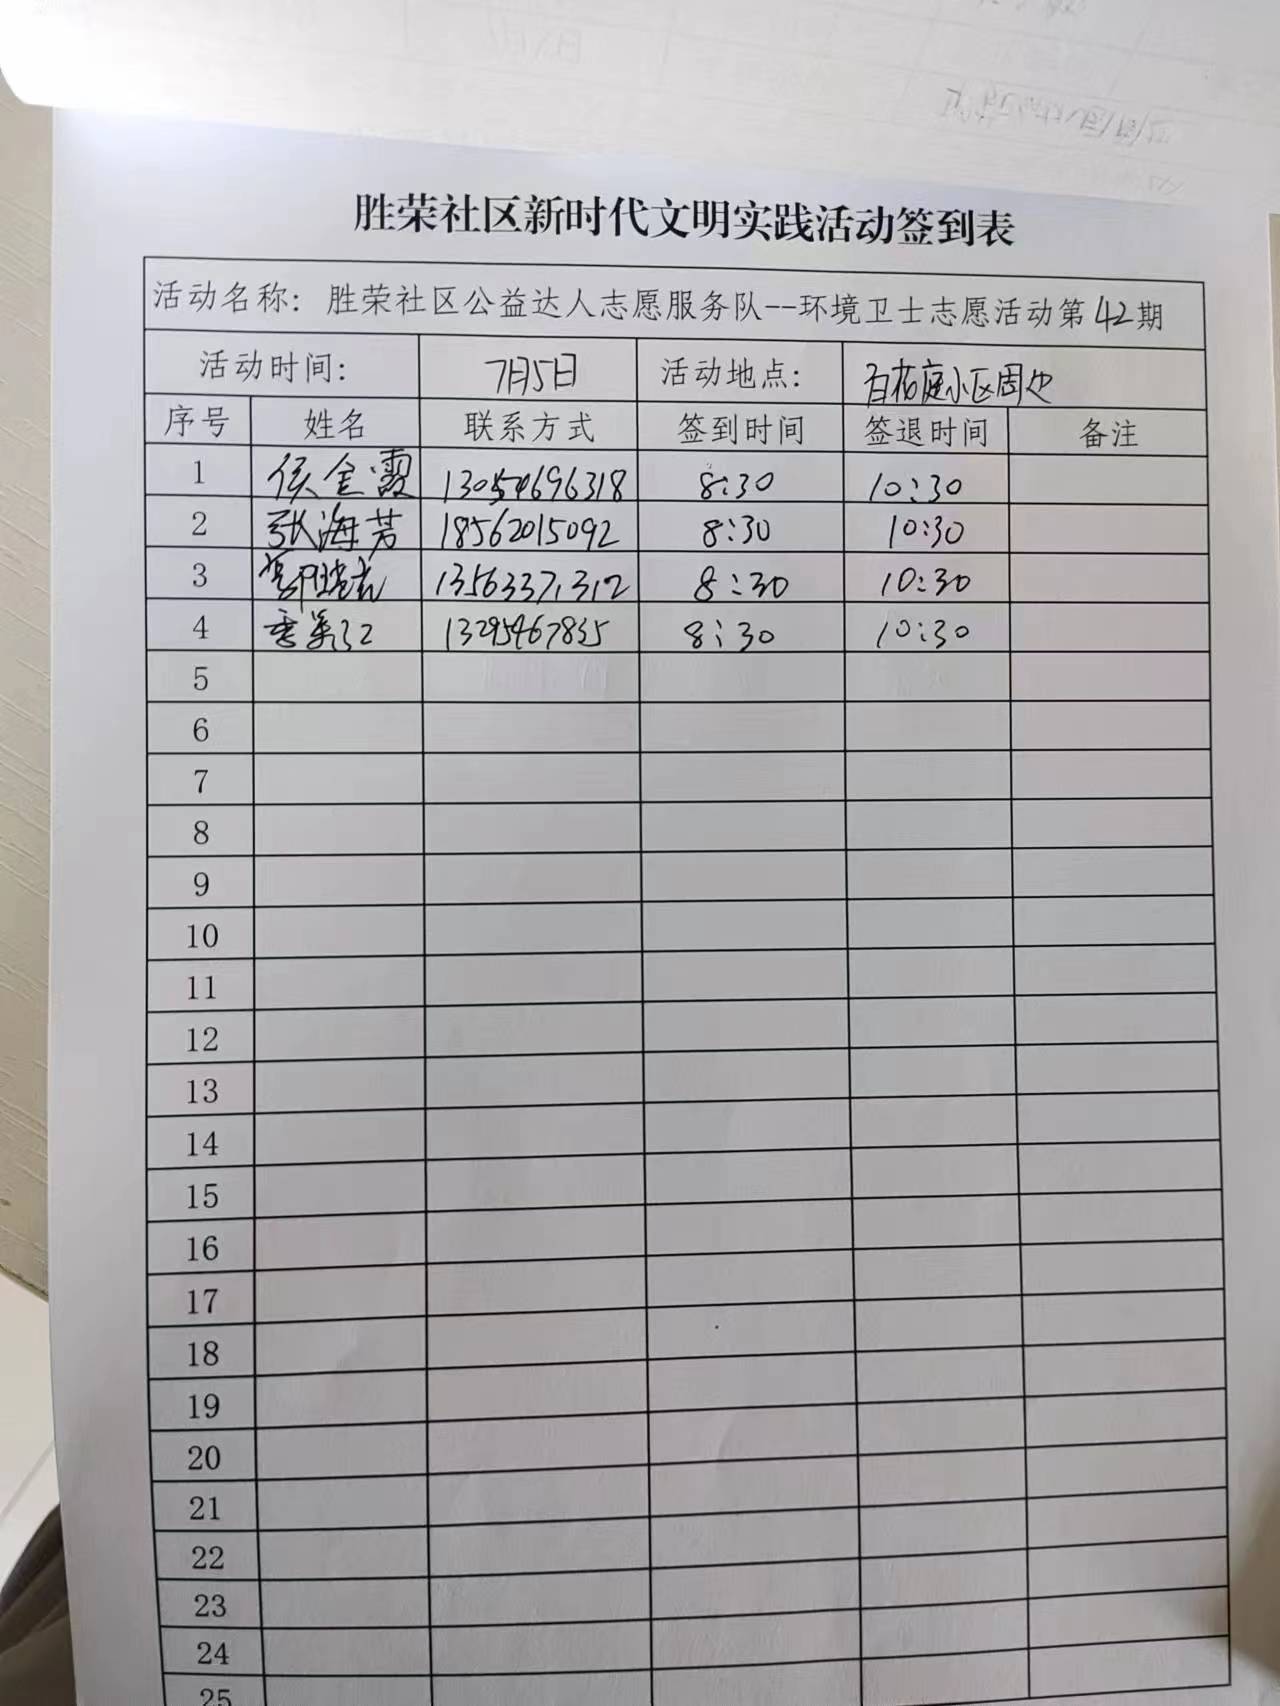 胜荣社区新时代文明实践活动签到表
活动名称：胜荣社区公益达人志愿服务队--环境卫士志愿活动第42期
活动时间： 7月5日 活动地点： 百花庭小区周边
序号 姓名 联系方式 签到时间 签退时间 备注
1 侯金霞 13054696318 8:30 10:30
2 张海芳 18562015092 8:30 10:30
3 13563371312 8:30 10:30
4 13295467835 8:30 10:30
5
6
7
8
9
10
11
12
13
14
15
16
17
18
19
20
21
22
23
24
25